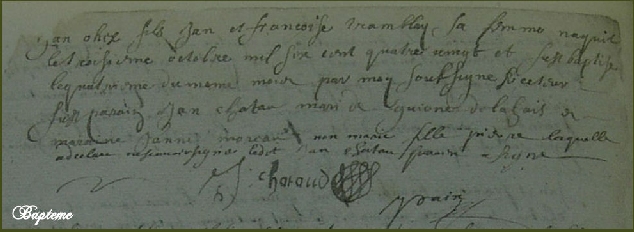 Jan chex fils Jan et francoise tramblay sa femme naquit
le troisieme octobre mil six cent quatre vingt et fust baptise
le quatrieme du meme mois par moy soubsigne recteur
fust parain Jan chatau mari de de
maraine Jannne moreau non mariee fille laquelle
a declare ne scavoir signer ledot Jan chatau parain a signe
J. chataud
Bapteme